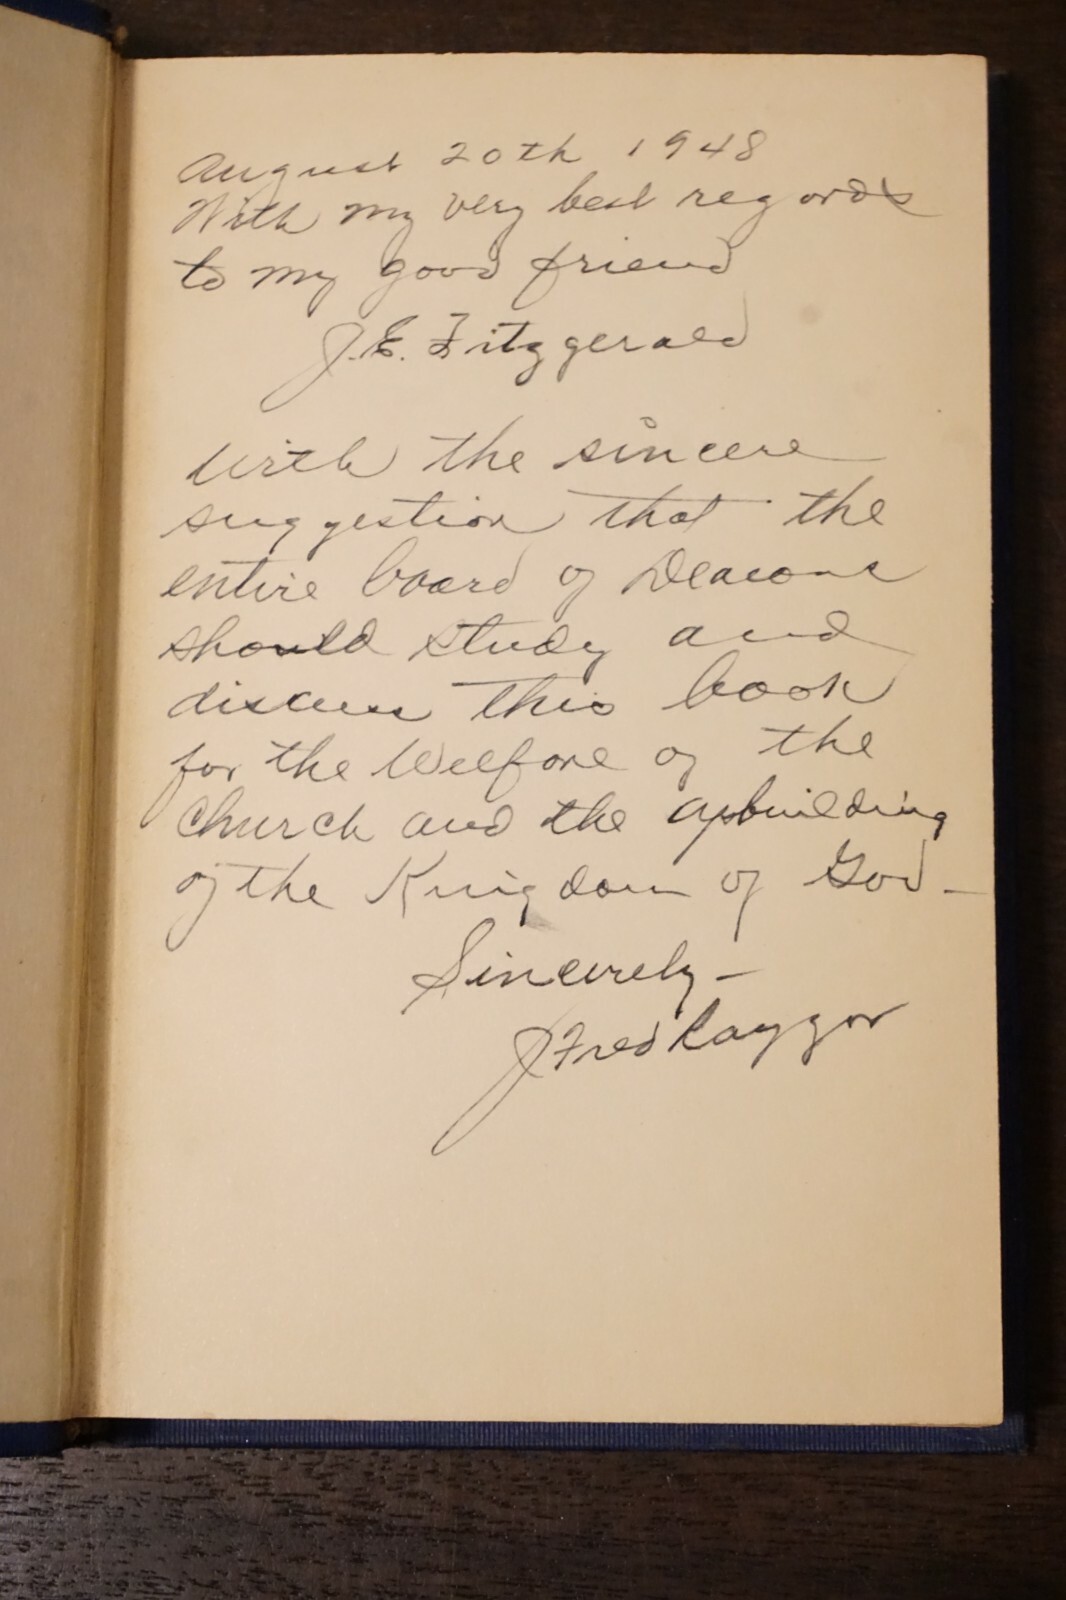 August 20th 1948
With my very best regards
to my good friend
J. E. Fitzgerald
With the sincere
suggestion that the
entire board of Deacons
should study and
discuss this book
for the Welfare of the
Church and the upbuilding
of the Kingdom of God -
Sincerely -
J Fred Rayzor